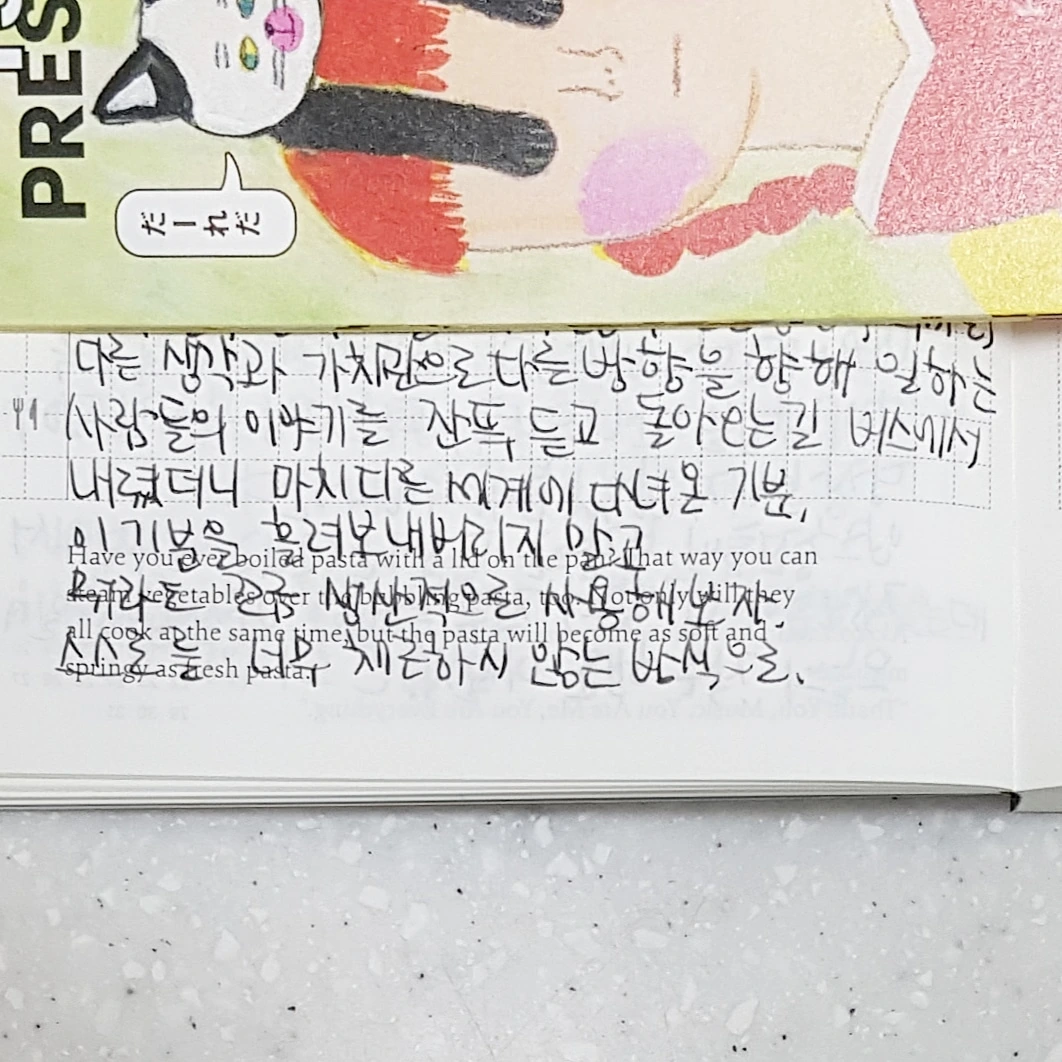 PRES
だーれだ
다른 생각과 가치관으로 다른 방향을 향해 일하는
사람들의 이야기를 잔뜩 듣고 돌아오는길 버스에서
내렸더니 마치 다른 세계에 다녀온 기분,
이 기분을 흘려보내버리지 말고
뭐라도 곧장 생산적으로 사용해보자.
스스로를 너무 채근하지 않는 방식으로.
Have you ever boiled pasta with a lid on the pan? That way you can
steam vegetables over the bubbling pasta, too. Not only will they
all cook at the same time, but the pasta will become as soft and
springy as fresh pasta.